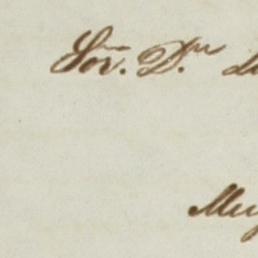 Sor. Dn
Muy